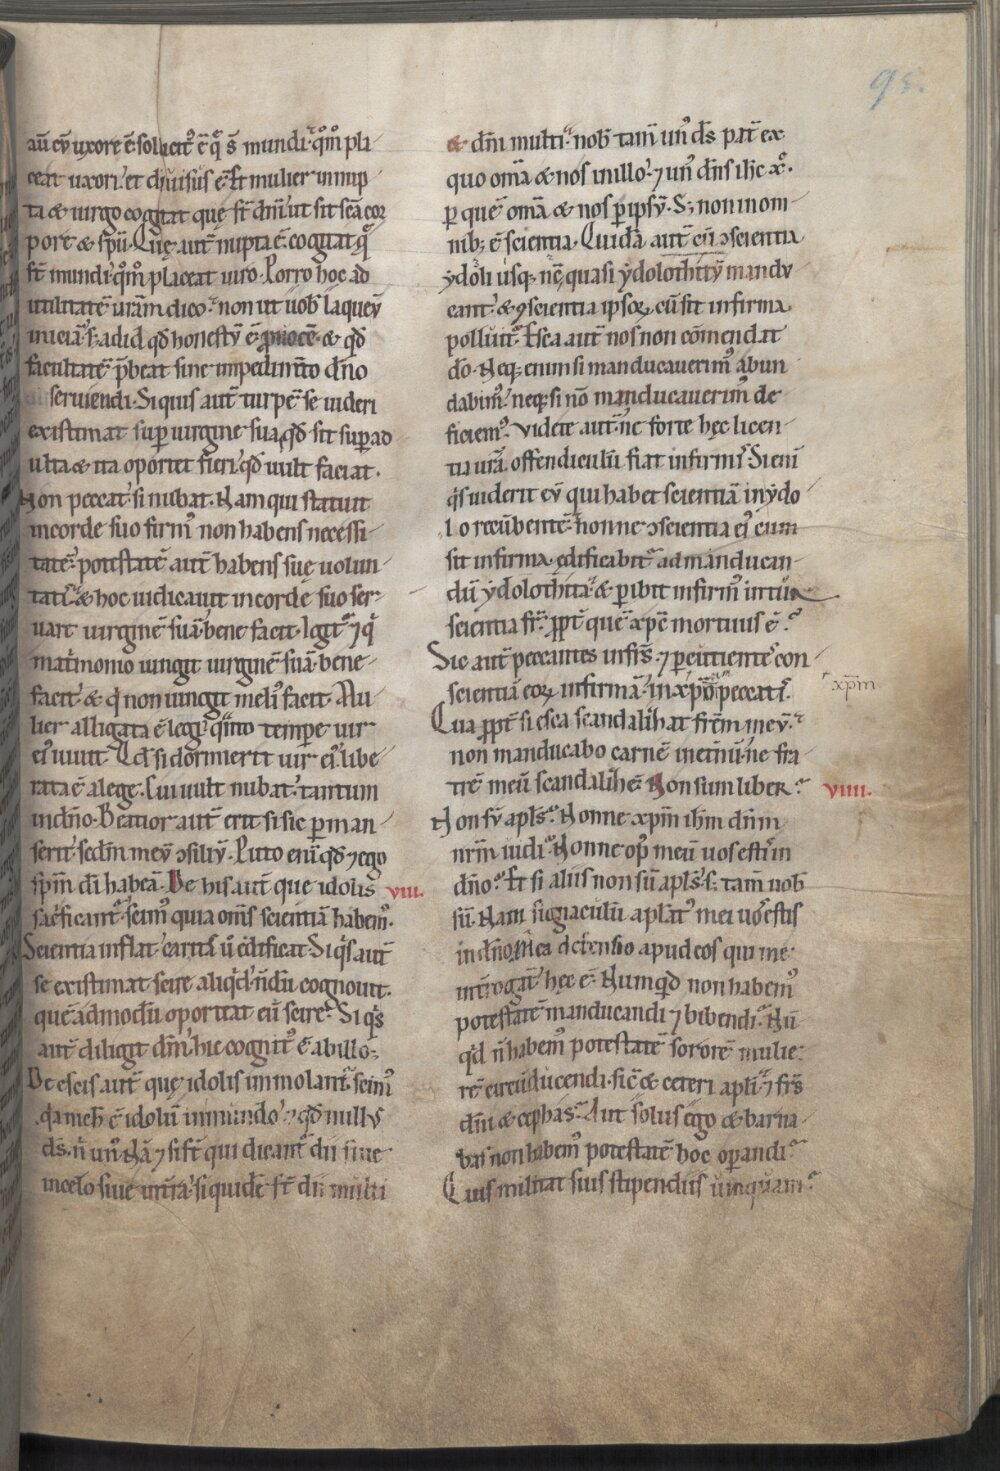 95.
aū cū uxore ē. sollicit⁹ ē q̄ s̄ mundi. q̊m̊ pla
ceat uxori. et diuisus ē. Et mulier innup
ta & uirgo cogitat quę s̄t dn̄i. ut sit sc̄a cor
pore & sp̄u. Quę aut̄ nupta ē. cogitat q̄
s̄t mundi. q̊m̊ placeat uiro. Porro hoc ad
utilitatē ur̄am dico. non ut uob̄ laqueū
iniciā. s; ad id qd̄ honestū ē. & qd̄
facultatē p̄beat sine impedim̄to dn̄o
seruiendi. Si quis aut̄ turpē se uideri
existimat sup uirgine sua. qd̄ sit sup ad
ulta & ita oportet fieri. qd̄ uult faciat.
Non peccat si nubat. Nam qui statuit
in corde suo firm⁹ non habens necessi
tatē. potestatē aut̄ habens suę uolun
tatis. & hoc iudicauit in corde suo ser
uare uirginē suā. bene facit. Igit̄ ⁊ q̄
mat̄monio iungit uirginē suā. bene
facit. & q̄ non iungit meli⁹ facit. Mu
lier alligata ē legi. q̄nto tempore uir
ei⁹ uiuit. Qd̄ si dormierit uir ei⁹. libe
rata ē a lege. Cui uult nubat. tantum
in dn̄o. Beatior aut̄ erit si sic perman
serit. sedm̄ meū ɔsiliū. Puto enī qd̄ ⁊ ego
sp̄m dī habeā. De his aut̄ que idolis
viii.
sac̄ficant̄. scim⁹ quia om̄s scientiā habem⁹.
Scientia inflat. caritas ū edificat. Si q̄s aut̄
se existimat scire aliq̄d. n̄dū cognouit.
quēadmodū oporteat eū scire. Si q̄s
aut̄ diligit dm̄. hic cognit⁹ ē ab illo.
De escis aut̄ quę idolis immolant̄. scim⁹
q̄a nich̄ ē idolū in mundo. ⁊ qd̄ nullus
ds̄. n̄ un⁹. Nā ⁊ si s̄t qui dicant̄ dii siue
in celo siue in t̄ra. siquidē s̄t dii multi
& dn̄i multi. nob̄ tam̄ un⁹ ds̄ pat̄ ex
quo om̄a & nos in illo. ⁊ un⁹ dn̄s ih̄c x̄.
p quē om̄a & nos p ipsū. S; non in om
nib; ē scientia. Quidā aut̄ cū ɔscientia
ydoli usq; nē. quasi ydolothitū mandu
cant. & ɔscientia ipsoꝝ cū sit infirma
polluit̄. Esca aut̄ nos non cōmendat
dō. Neq; enim si manducauerim⁹ abun
dabim⁹. neq; si nō manducauerim⁹ de
ficiem⁹. Videte aut̄ ne forte hęc licen
tia ur̄a. offendiculū fiat infirmis. Si enī
q̄s uiderit eū qui habet scientiā in ydo
lo recūbentē. nonne ɔscientia ei⁹ cum
sit infirma. edificabit̄ ad manducan
dū ydolothita. & peribit infirm⁹ in tua
scientia fr̄. pp̄t quē xp̄c mortuus ē.
Sic aut̄ peccantes in fr̄s. ⁊ percutientes con
scientiā eoꝝ infirmā. in xp̄o peccatis.
xp̄m
Qua pp̄t si esca scandalizat fr̄em meū.
non manducabo carnē in et̄nū. ne fra
trē meū scandalizē. Non sum liber.
viiii.
Non sū apl̄s. Nonne xp̄m ih̄m dn̄m
nr̄m uidi. Nonne op⁹ meū uos estis in
dn̄o. Et si aliis non sū apl̄s. s; tam̄ uob̄
sū. Nam signaculū aplat⁹ mei uos estis
in dn̄o. Mea defensio apud eos qui me
int̄rogant hęc ē. Numq̄d non habem⁹
potestatē manducandi ⁊ bibendi. Nū
q̄d n̄ habem⁹ potestatē sororē mulie
rē circūducendi. sic̄ & ceteri apl̄i. ⁊ fr̄s
dn̄i & cephas. Aut solus ego & barna
bas non habem⁹ potestatē hoc operandi.
Quis militat suis stipendiis umquam.